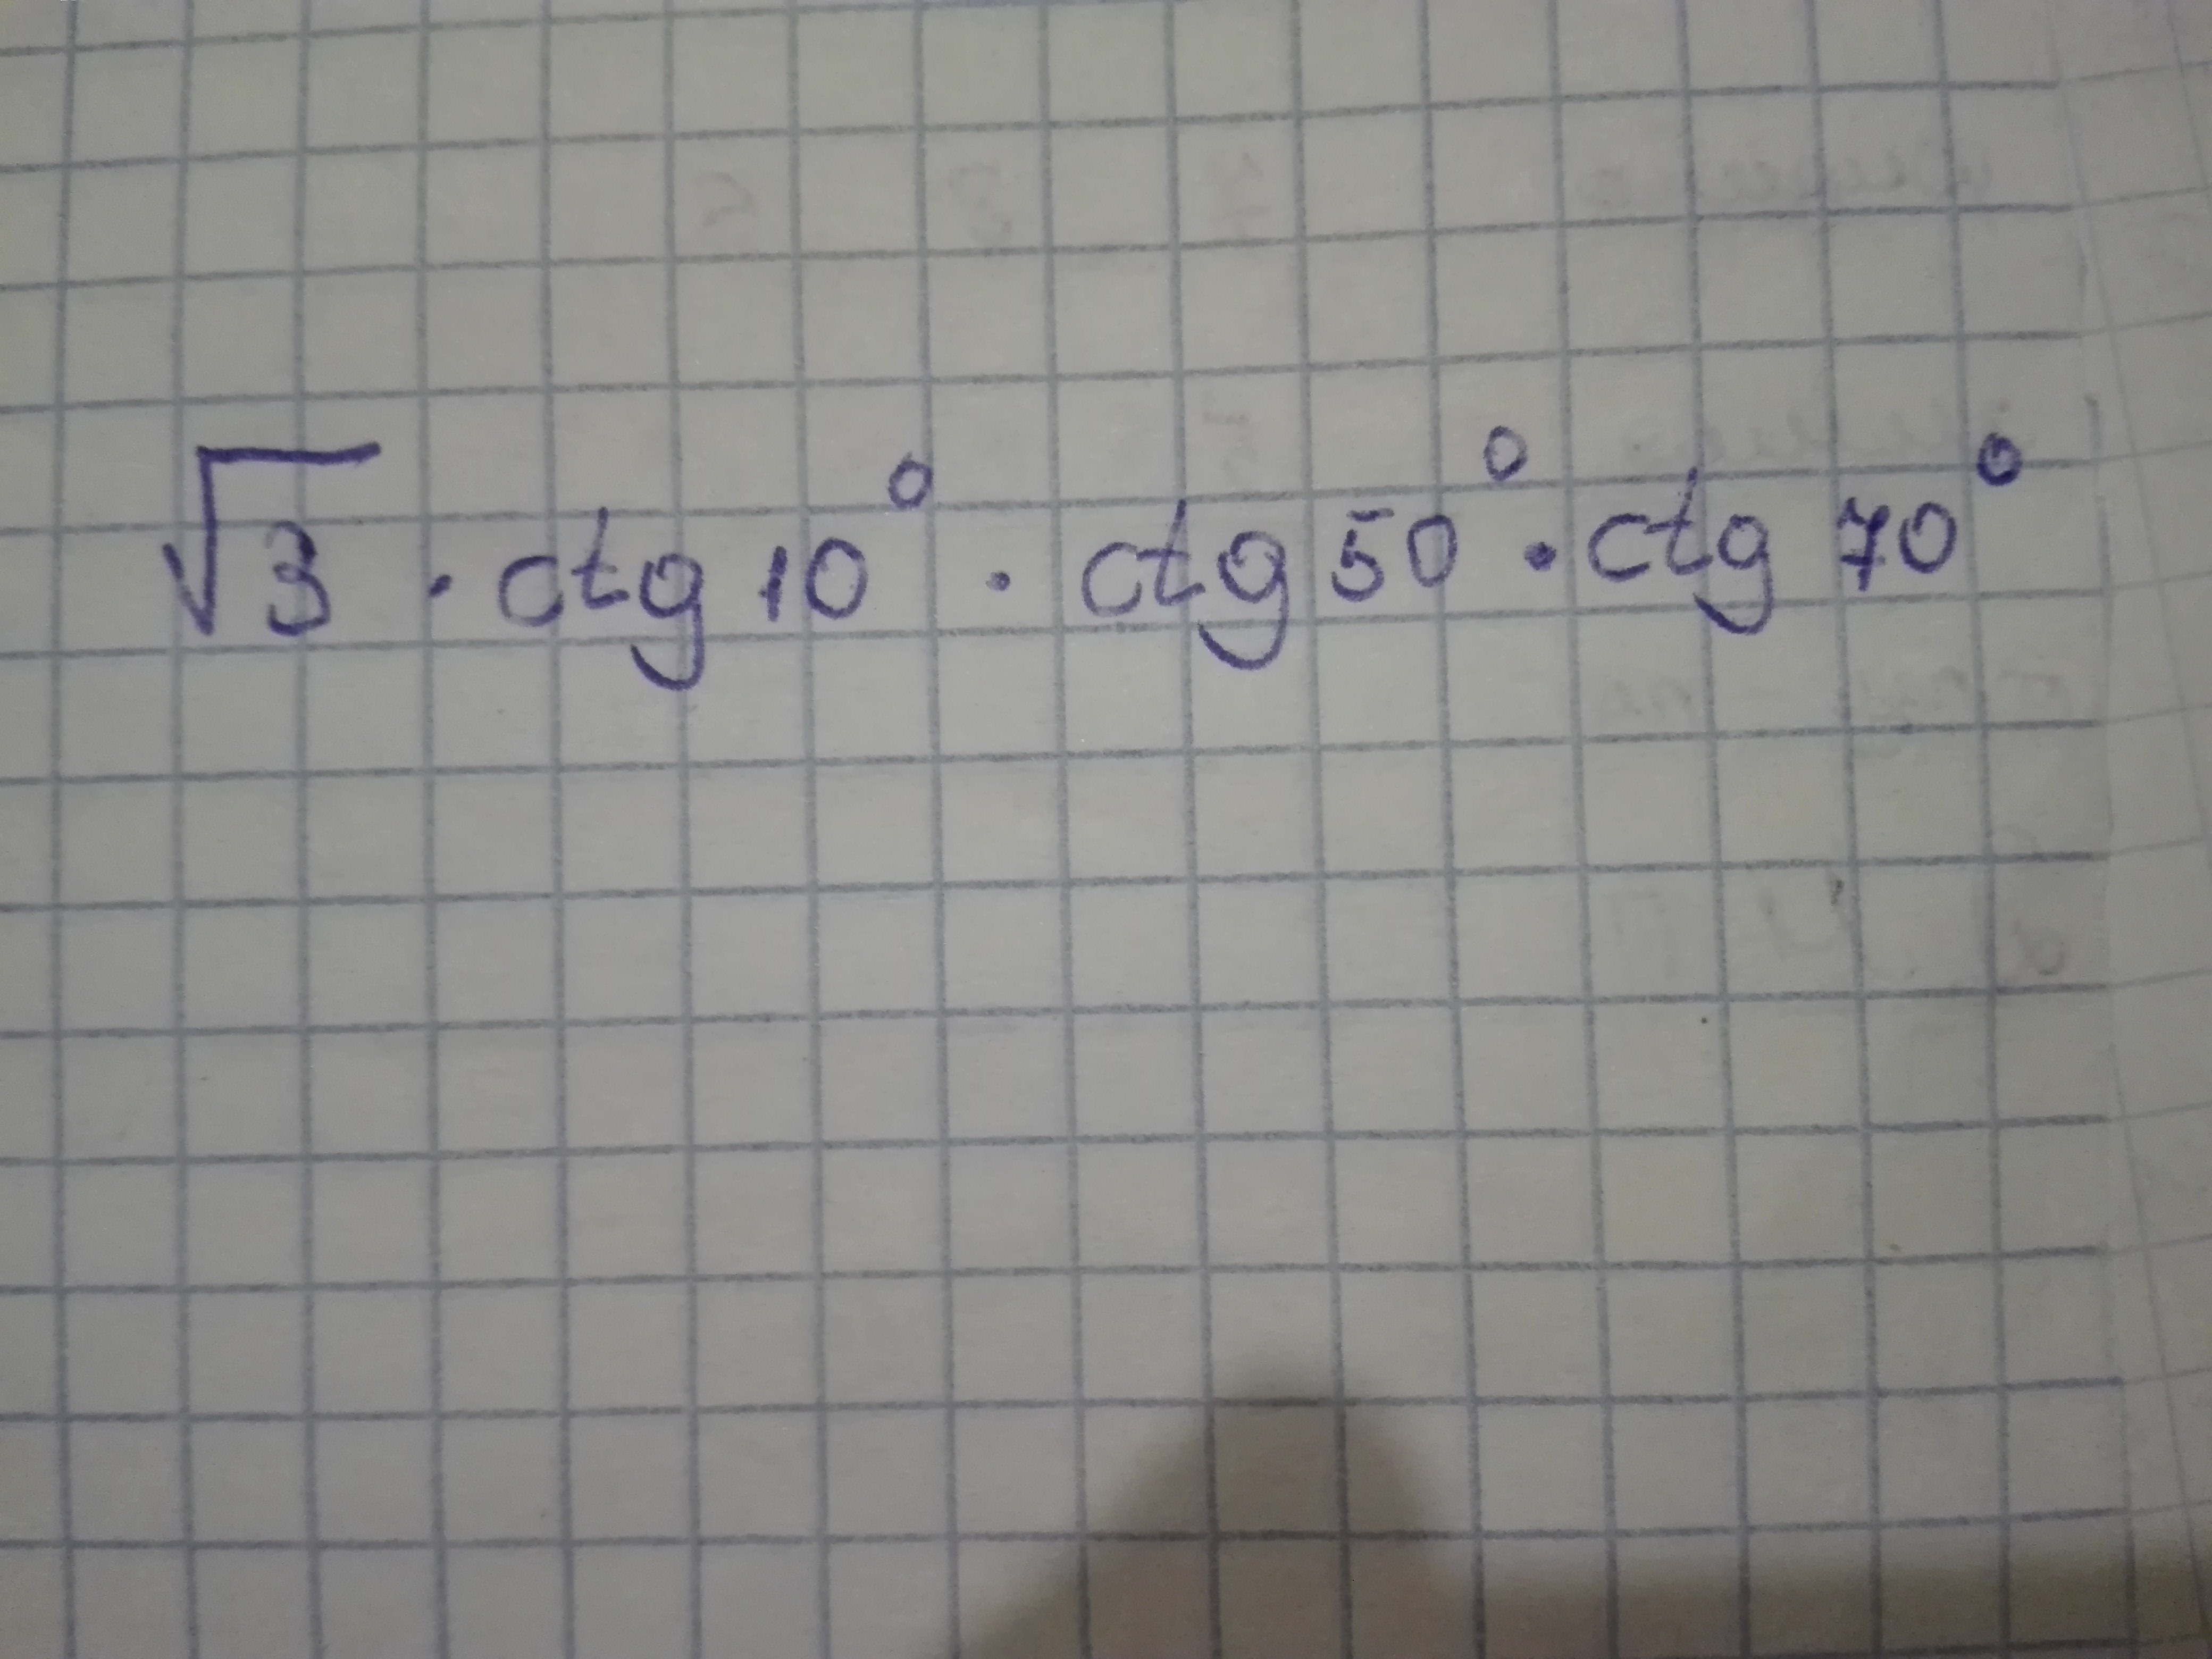 √3 · ctg 10° · ctg 50° · ctg 70°